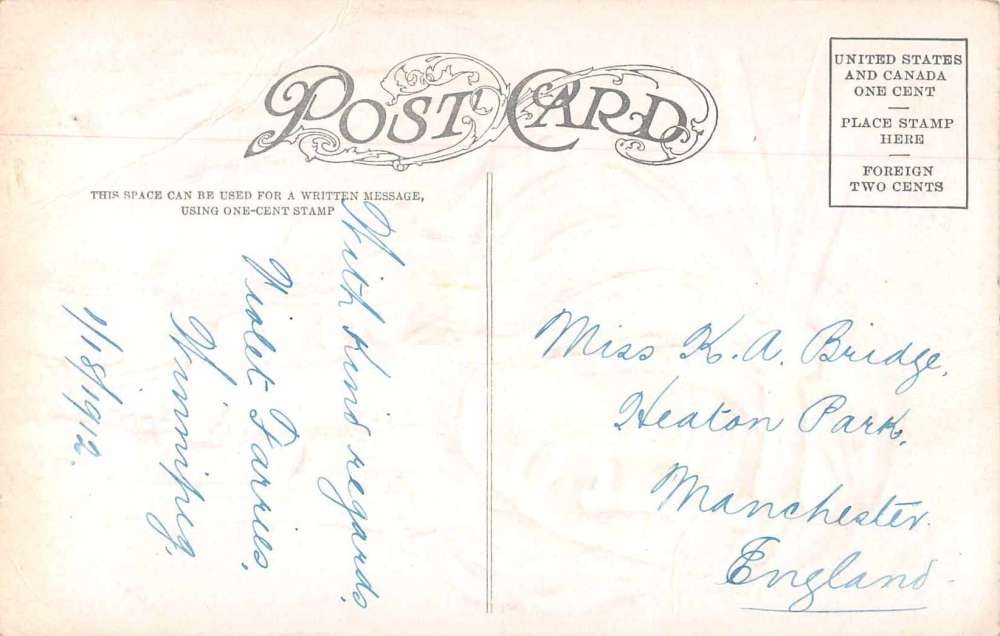 POST CARD
UNITED STATES
AND CANADA
ONE CENT
—
PLACE STAMP
HERE
—
FOREIGN
TWO CENTS
THIS SPACE CAN BE USED FOR A WRITTEN MESSAGE,
USING ONE-CENT STAMP
With kind regards,
Violet Farries,
Winnipeg,
1/18/1912.
Miss K. A. Bridge,
Heaton Park,
Manchester.
England